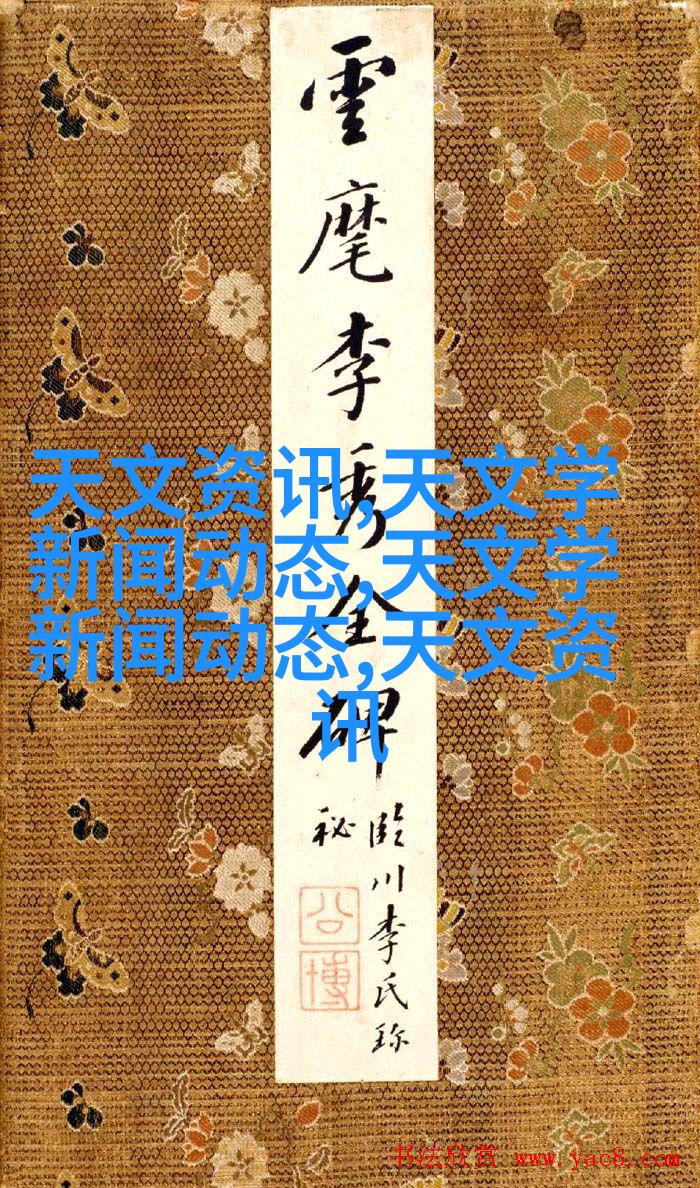 雲麾李秀全碑
臨川李氏珎
秘
公
博
天文资讯,天文学
新闻动态,天文学
新闻动态,天文资
讯
书法欣赏 www.yac8.com